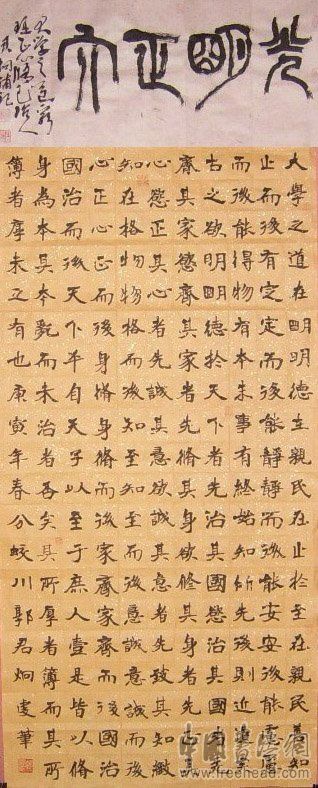 光明正大
大學之道窮
理正心修己治人
君炯補記
大學之道在明明德在親民在止於至在親民善知
止而後有定定而後能靜靜而後能安安後能而慮
而後能得物有本末事有終始知所先後則近道矣
古之欲明明德於天下者先治其國慾治其國者先
齊其家慾齊其家者先修其身欲修其身者先正其
心慾正其心者先誠其意欲誠其意者先致其知致
知在格物物格而後知至知至而後意誠意誠而後
心正心正而後身脩身脩而後家齊家齊而後國治
國治而後天下平自天子以至于庶人壹是皆以脩
身為本其本亂而末治者否矣其所厚者薄而其所
薄者厚未之有也庚寅年春分蛟川郭君炯虔筆
中國書法網
www.freehead.com